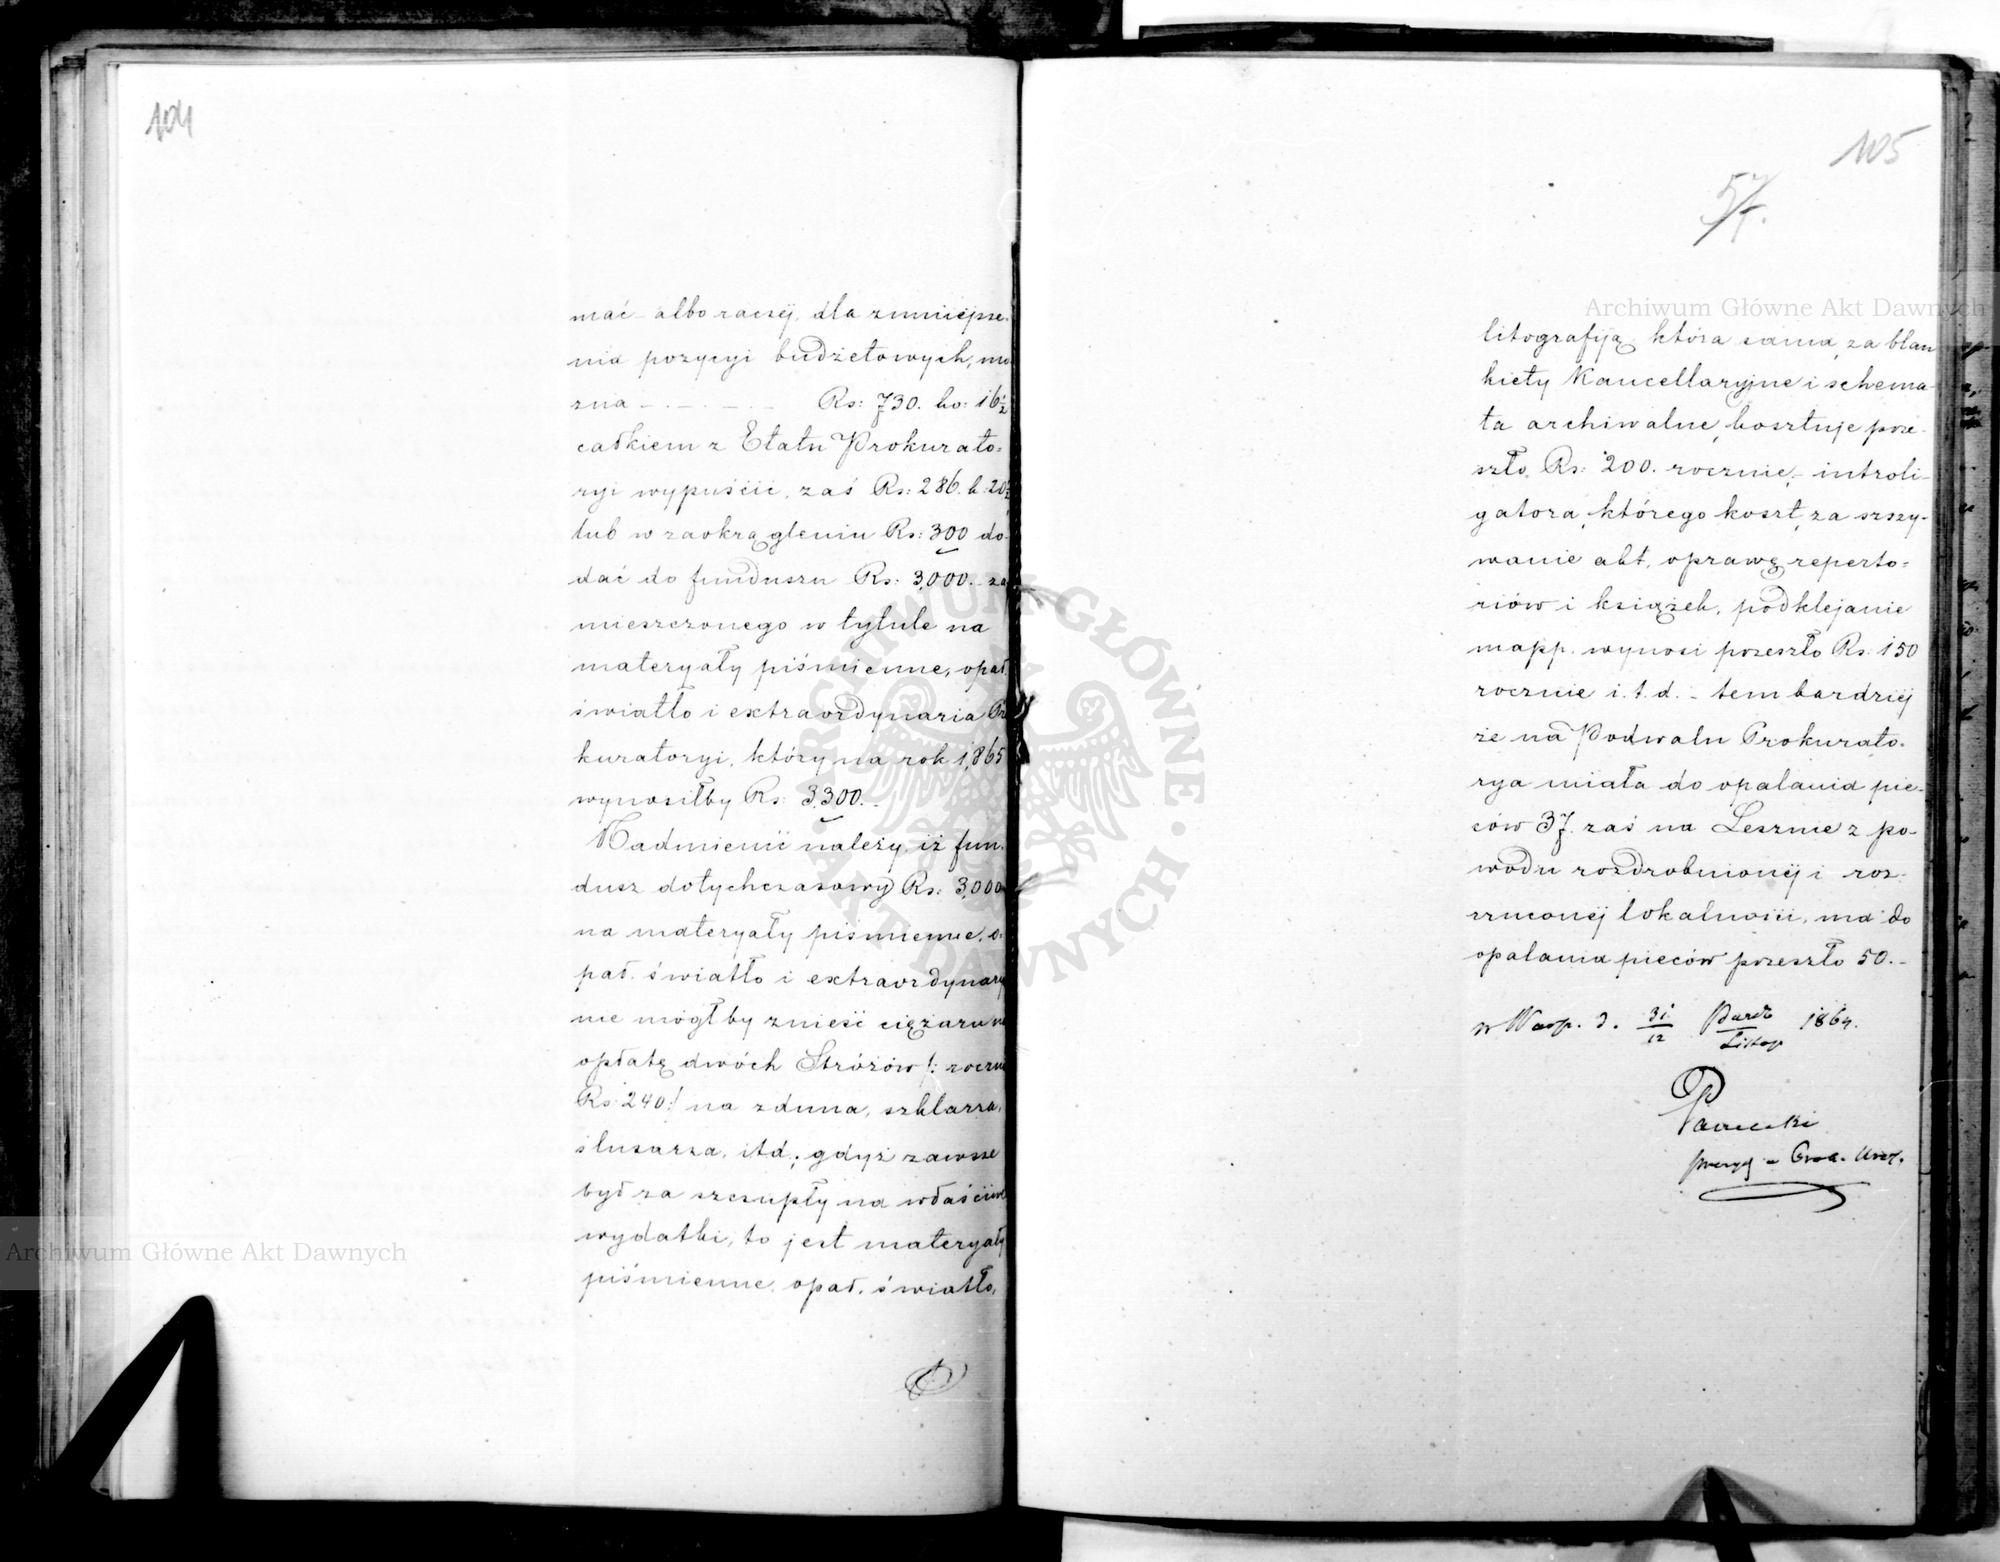 104
mać – albo raczéj, dla zmniejsze-
nia pozycyi budżetowych, mo
żna – . – . – . – Rs: 730. ko: 16½
całkiem z Etatu Prokurato-
ryi wypuścić, zaś Rs: 286. k: 20½
lub w zaokrągleniu Rs: 300 do-
dać do funduszu Rs: 3,000. – za
mieszczonego w tytule na
materyały piśmienne, opał
światło i extraordynaria Pro
kuratoryi, który na rok 1,865
wynosiłby Rs: 3,300. –
Nadmienić należy, iż fun-
dusz dotychczasowy Rs: 3,000
na materyały piśmienne, o-
pał, światło i extraordynary
nie mógłby znieść ciężaru na
opłatę dwóch Stróżów /: rocznie
Rs 240 :/ na zduna, szklarza,
ślusarza, itd; gdyż zawsze
był za szczupły na właściwe
wydatki, to jest materyały
piśmienne, opał, światło,
105
57.
litografiją, która sama, za blan
kiety Kancellaryjne i schema-
ta archiwalne, kosztuje prze-
szło Rs: 200. rocznie, – introli-
gatora, którego koszt, za zszy-
wanie akt, oprawę reperto-
riów i książek, podklejanie
mapp. wynosi przeszło Rs: 150
rocznie i. t. d. – tem bardziéj
że na Podwalu Prokurato-
rya miała do opalania pie-
ców 37. zaś na Lesznie z po-
wodu rozdrobnionéj i roz-
rzuconéj lokalności, ma do
opalania pieców przeszło 50. –
w Warsz. d. 31/12 Paźdz/Listop 1864.
Archiwum Główne Akt Dawnych
Archiwum Główne Akt Dawnych
ARCHIWUM GŁÓWNE · AKT DAWNYCH ·